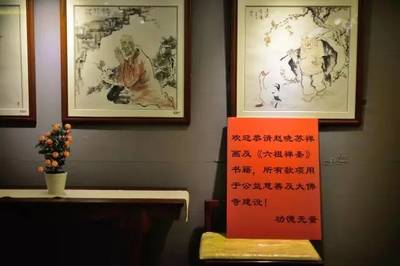 欢迎恭请赵晓苏禅
画及《六祖禅圣》
书籍，所有款项用
于公益慈善及大佛
寺建设！
功德无量